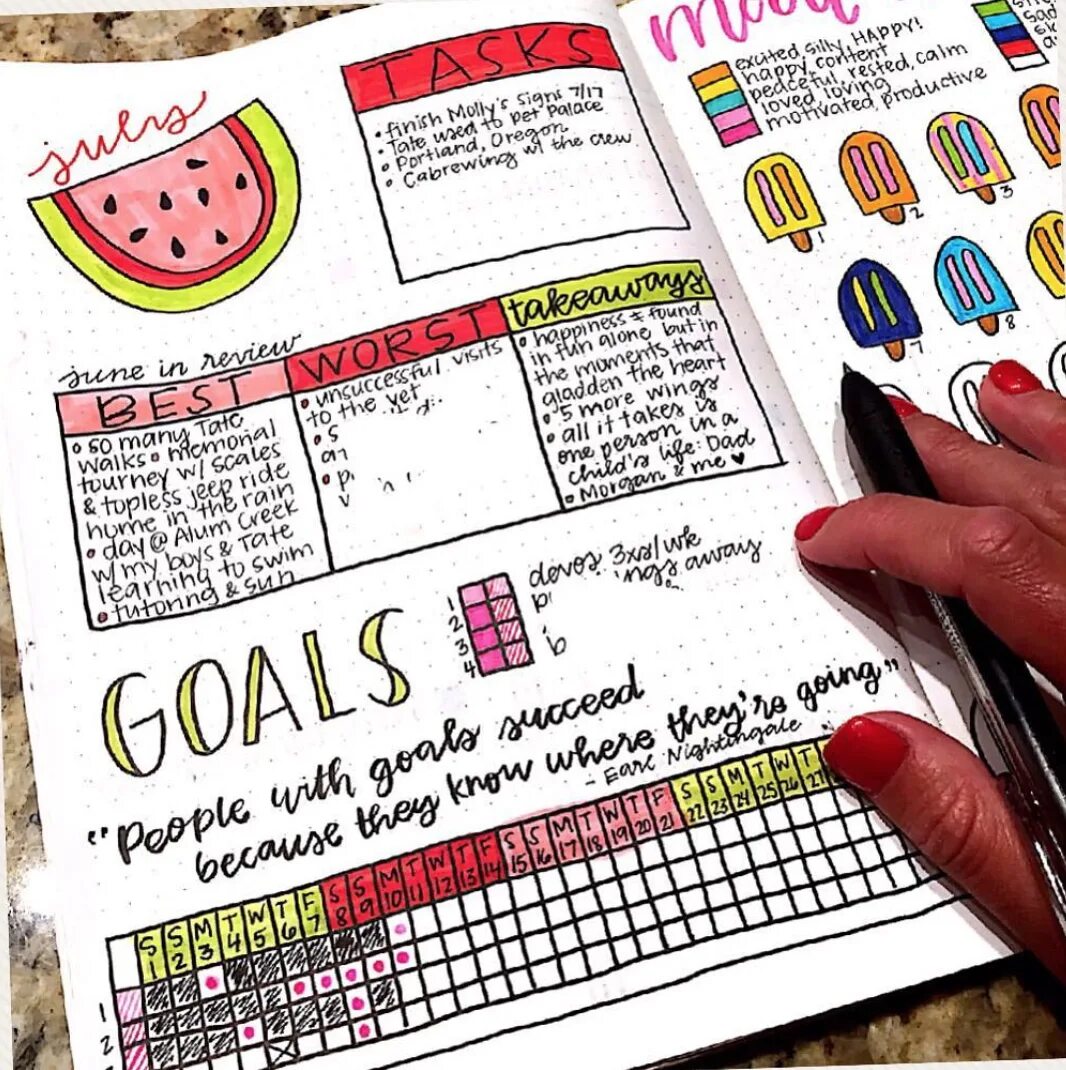 july
TASKS
• finish Molly's signs 7/17
• Tate used to pet Palace
• Portland, Oregon
• Cabrewing w/ the crew
june in review
BEST
• so many Tate
walks • memorial
tourney w/ scales
& topless jeep ride
home in the rain
• day @ Alum Creek
w/ my boys & Tate
learning to swim
• tutoring & sun
WORST
• unsuccessful visits
to the vet
takeaways
• happiness ≠ found
in fun alone but in
the moments that
gladden the heart
• 5 more wings
• all it takes is
one person in a
child's life: Dad
• Morgan & me ♥
GOALS
1
2
3
4
devos: 3xs/wk
away
"People with goals succeed
because they know where they're going"
- Earl Nightingale
S S M T W T F S S M T W T F S S M T W T F S S M T W T
1 2 3 4 5 6 7 8 9 10 11 12 13 14 15 16 17 18 19 20 21 22 23 24 25 26 27
1
2
mood
excited, silly, HAPPY!
happy, content
peaceful, rested, calm
loved, loving
motivated, productive
1
2
3
7
8